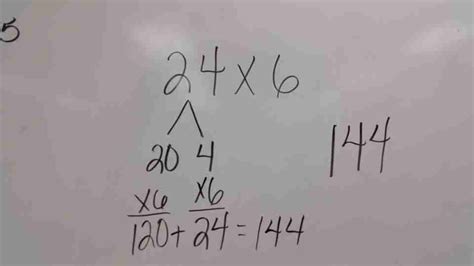 5
24 x 6
20 4
x6 x6
120 + 24 = 144
144